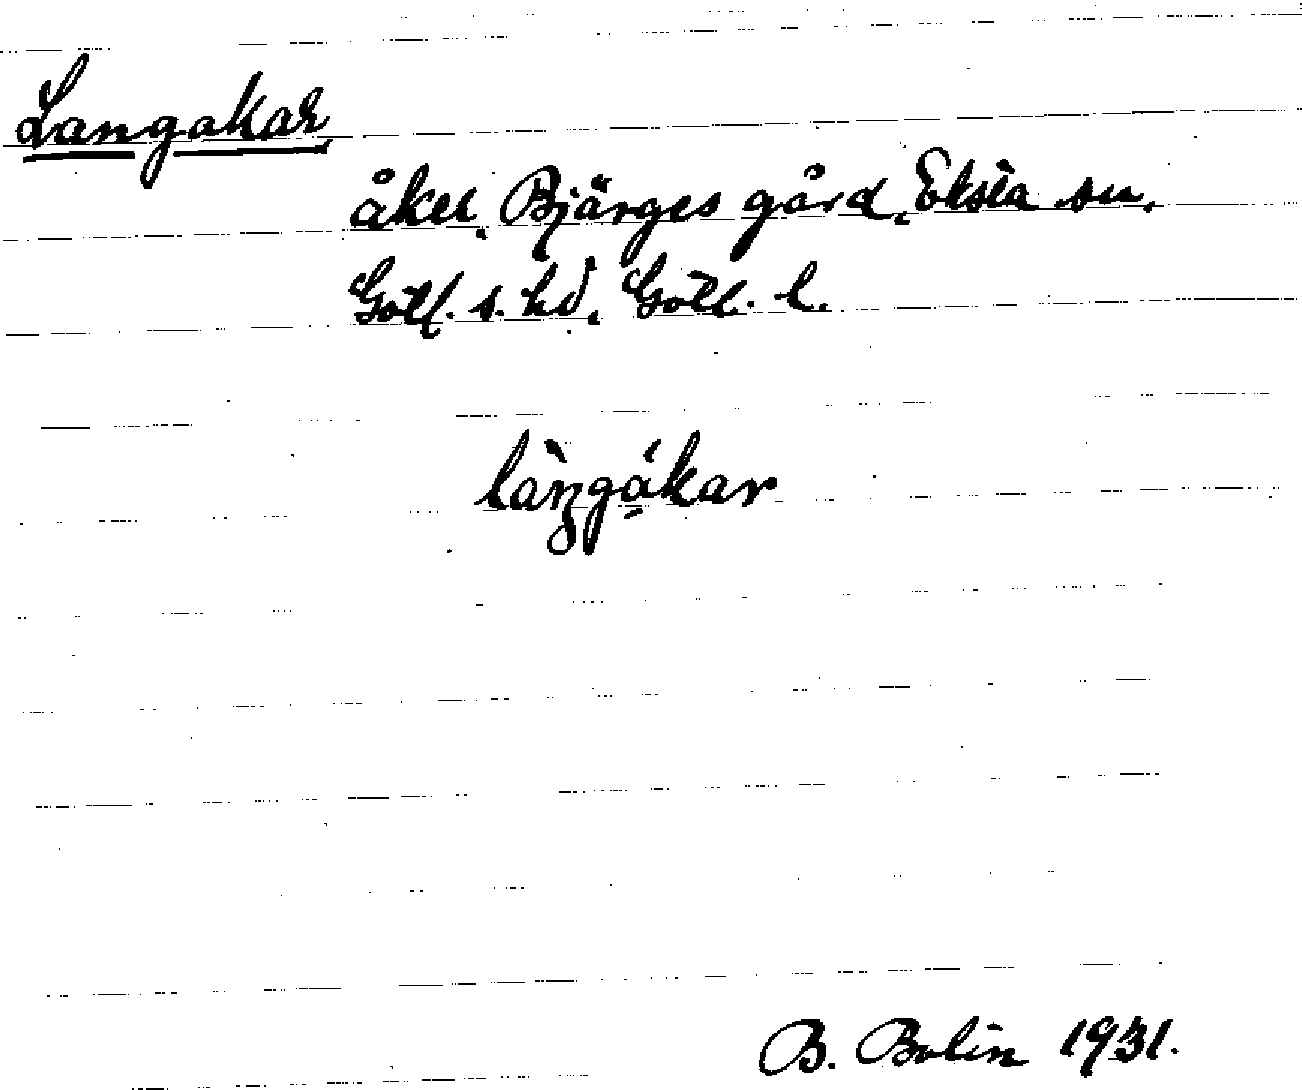 Langakar
åker, Bjärges gård, Eksta sn,
Gotl. s. hd, Gotl. l.
làŋgákar
B. Bolin 1931.